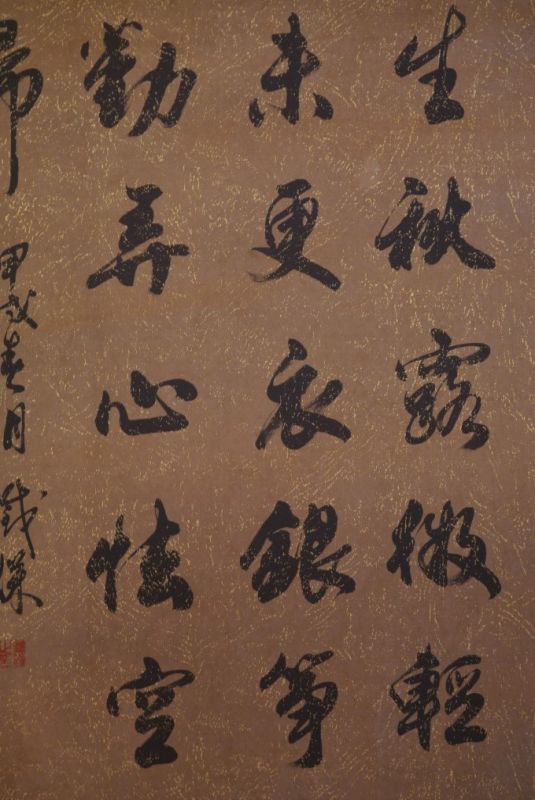 生秋露微輕
未更衣銀箏
勤弄心怯空
歸
甲戌春月